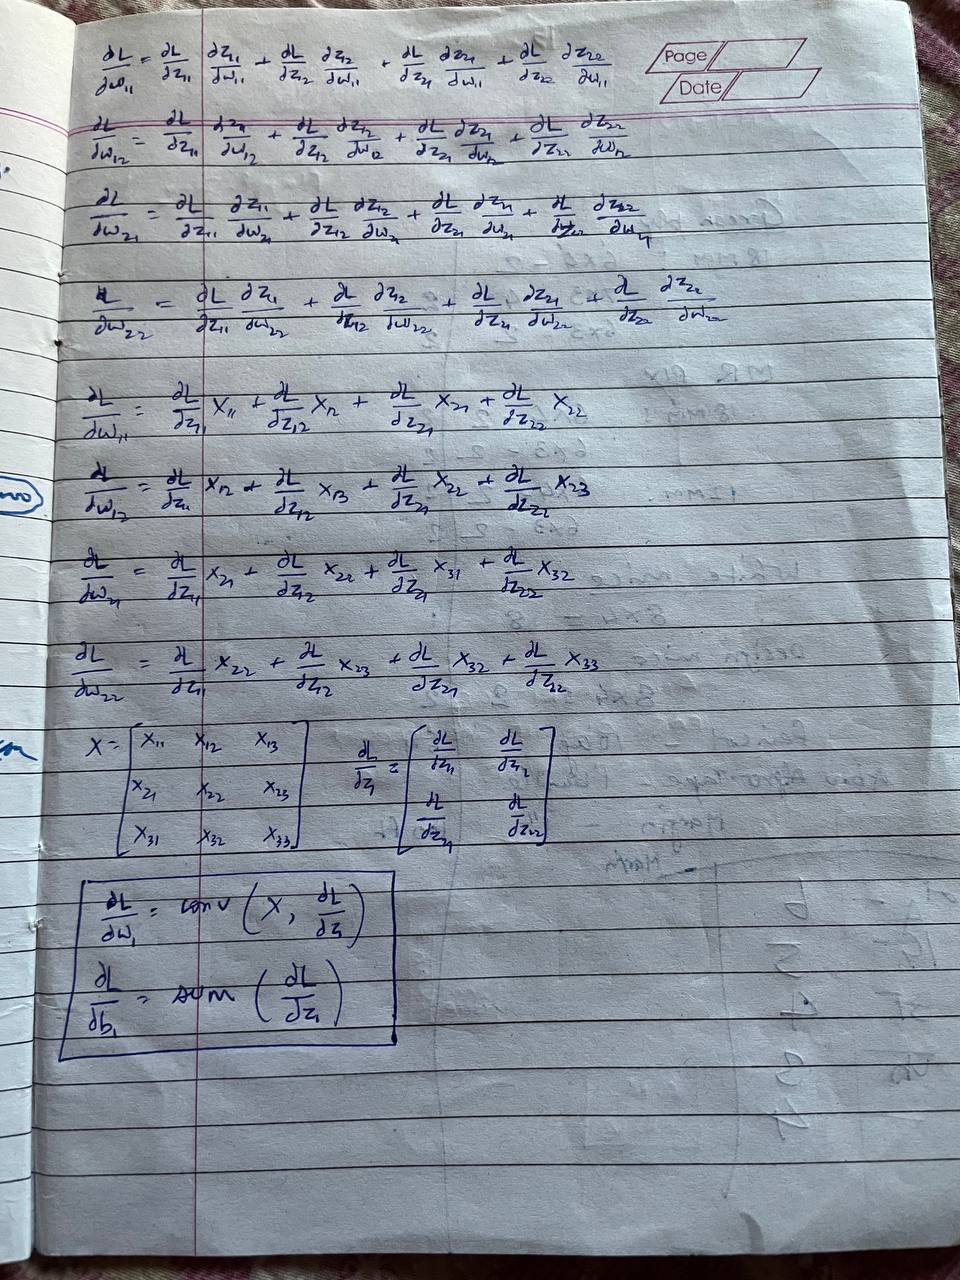 Page
Date
∂L/∂w₁₁ = ∂L/∂z₁₁ ∂z₁₁/∂w₁₁ + ∂L/∂z₁₂ ∂z₁₂/∂w₁₁ + ∂L/∂z₂₁ ∂z₂₁/∂w₁₁ + ∂L/∂z₂₂ ∂z₂₂/∂w₁₁
∂L/∂w₁₂ = ∂L/∂z₁₁ ∂z₁₁/∂w₁₂ + ∂L/∂z₁₂ ∂z₁₂/∂w₁₂ + ∂L/∂z₂₁ ∂z₂₁/∂w₁₂ + ∂L/∂z₂₂ ∂z₂₂/∂w₁₂
∂L/∂w₂₁ = ∂L/∂z₁₁ ∂z₁₁/∂w₂₁ + ∂L/∂z₁₂ ∂z₁₂/∂w₂₁ + ∂L/∂z₂₁ ∂z₂₁/∂w₂₁ + ∂L/∂z₂₂ ∂z₂₂/∂w₂₁
∂L/∂w₂₂ = ∂L/∂z₁₁ ∂z₁₁/∂w₂₂ + ∂L/∂z₁₂ ∂z₁₂/∂w₂₂ + ∂L/∂z₂₁ ∂z₂₁/∂w₂₂ + ∂L/∂z₂₂ ∂z₂₂/∂w₂₂
∂L/∂w₁₁ = ∂L/∂z₁₁ X₁₁ + ∂L/∂z₁₂ X₁₂ + ∂L/∂z₂₁ X₂₁ + ∂L/∂z₂₂ X₂₂
∂L/∂w₁₂ = ∂L/∂z₁₁ X₁₂ + ∂L/∂z₁₂ X₁₃ + ∂L/∂z₂₁ X₂₂ + ∂L/∂z₂₂ X₂₃
∂L/∂w₂₁ = ∂L/∂z₁₁ X₂₁ + ∂L/∂z₁₂ X₂₂ + ∂L/∂z₂₁ X₃₁ + ∂L/∂z₂₂ X₃₂
∂L/∂w₂₂ = ∂L/∂z₁₁ X₂₂ + ∂L/∂z₁₂ X₂₃ + ∂L/∂z₂₁ X₃₂ + ∂L/∂z₂₂ X₃₃
X = [ X₁₁ X₁₂ X₁₃
X₂₁ X₂₂ X₂₃
X₃₁ X₃₂ X₃₃ ]
∂L/∂z₁ = [ ∂L/∂z₁₁ ∂L/∂z₁₂
∂L/∂z₂₁ ∂L/∂z₂₂ ]
∂L/∂w₁ = conv ( X, ∂L/∂z₁ )
∂L/∂b₁ = sum ( ∂L/∂z₁ )